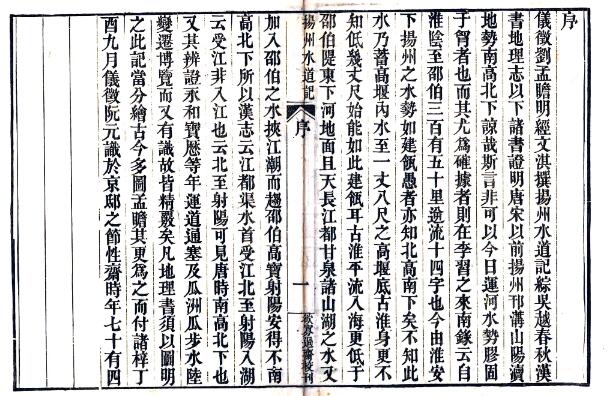 序
儀徵劉孟瞻明經文淇撰揚州水道記綜吳越春秋漢
書地理志以下諸書證明唐宋以前揚州邗溝山陽瀆
地勢南高北下諒哉斯言非可以今日運河水勢膠固
于胷者也而其尤為確據者則在李習之來南錄云自
淮陰至邵伯三百有五十里逆流十四字也今由淮安
下揚州之水勢如建瓴愚者亦知北高南下矣不知此
水乃蓄高堰內水至一丈八尺之高堰底古淮身更不
知低幾丈尺始能如此建瓴耳古淮平流入海更低于
邵伯隄東下河地面且天長江都甘泉諸山湖之水又
揚州水道記
序
一
加入邵伯之水挾江潮而趨邵伯高寶射陽安得不南
高北下所以漢志云江都渠水首受江北至射陽入湖
云受江非入江也云北至射陽可見唐時南高北下也
又其辨證永和寶厯等年運道通塞及瓜洲瓜步水陸
變遷博覽而又有識故皆精覈矣凡地理書須以圖明
之此記當分繪古今多圖孟瞻其更為之而付諸梓丁
酉九月儀徵阮元識於京邸之節性齋時年七十有四